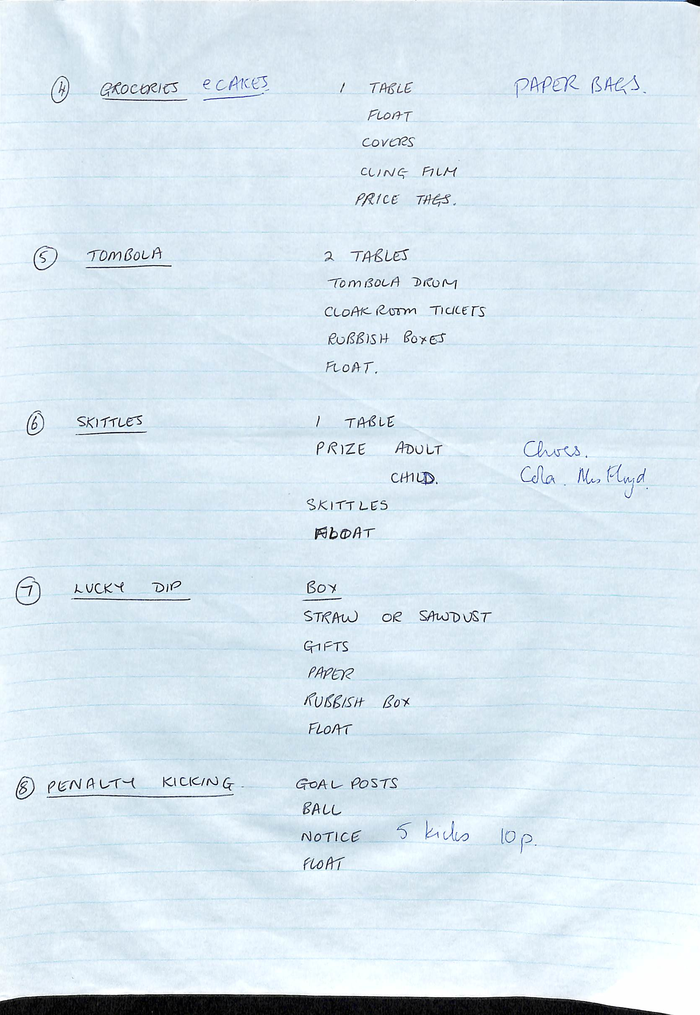 ④ GROCERIES e CAKES 1 TABLE PAPER BAGS.
FLOAT
COVERS
CLING FILM
PRICE TAGS.
⑤ TOMBOLA 2 TABLES
TOMBOLA DRUM
CLOAKROOM TICKETS
RUBBISH BOXES
FLOAT.
⑥ SKITTLES 1 TABLE
PRIZE ADULT Chocs.
CHILD. Cola. Mrs Floyd.
SKITTLES
FLOAT
⑦ LUCKY DIP BOX
STRAW OR SAWDUST
GIFTS
PAPER
RUBBISH BOX
FLOAT
⑧ PENALTY KICKING. GOAL POSTS
BALL
NOTICE 5 kicks 10p.
FLOAT